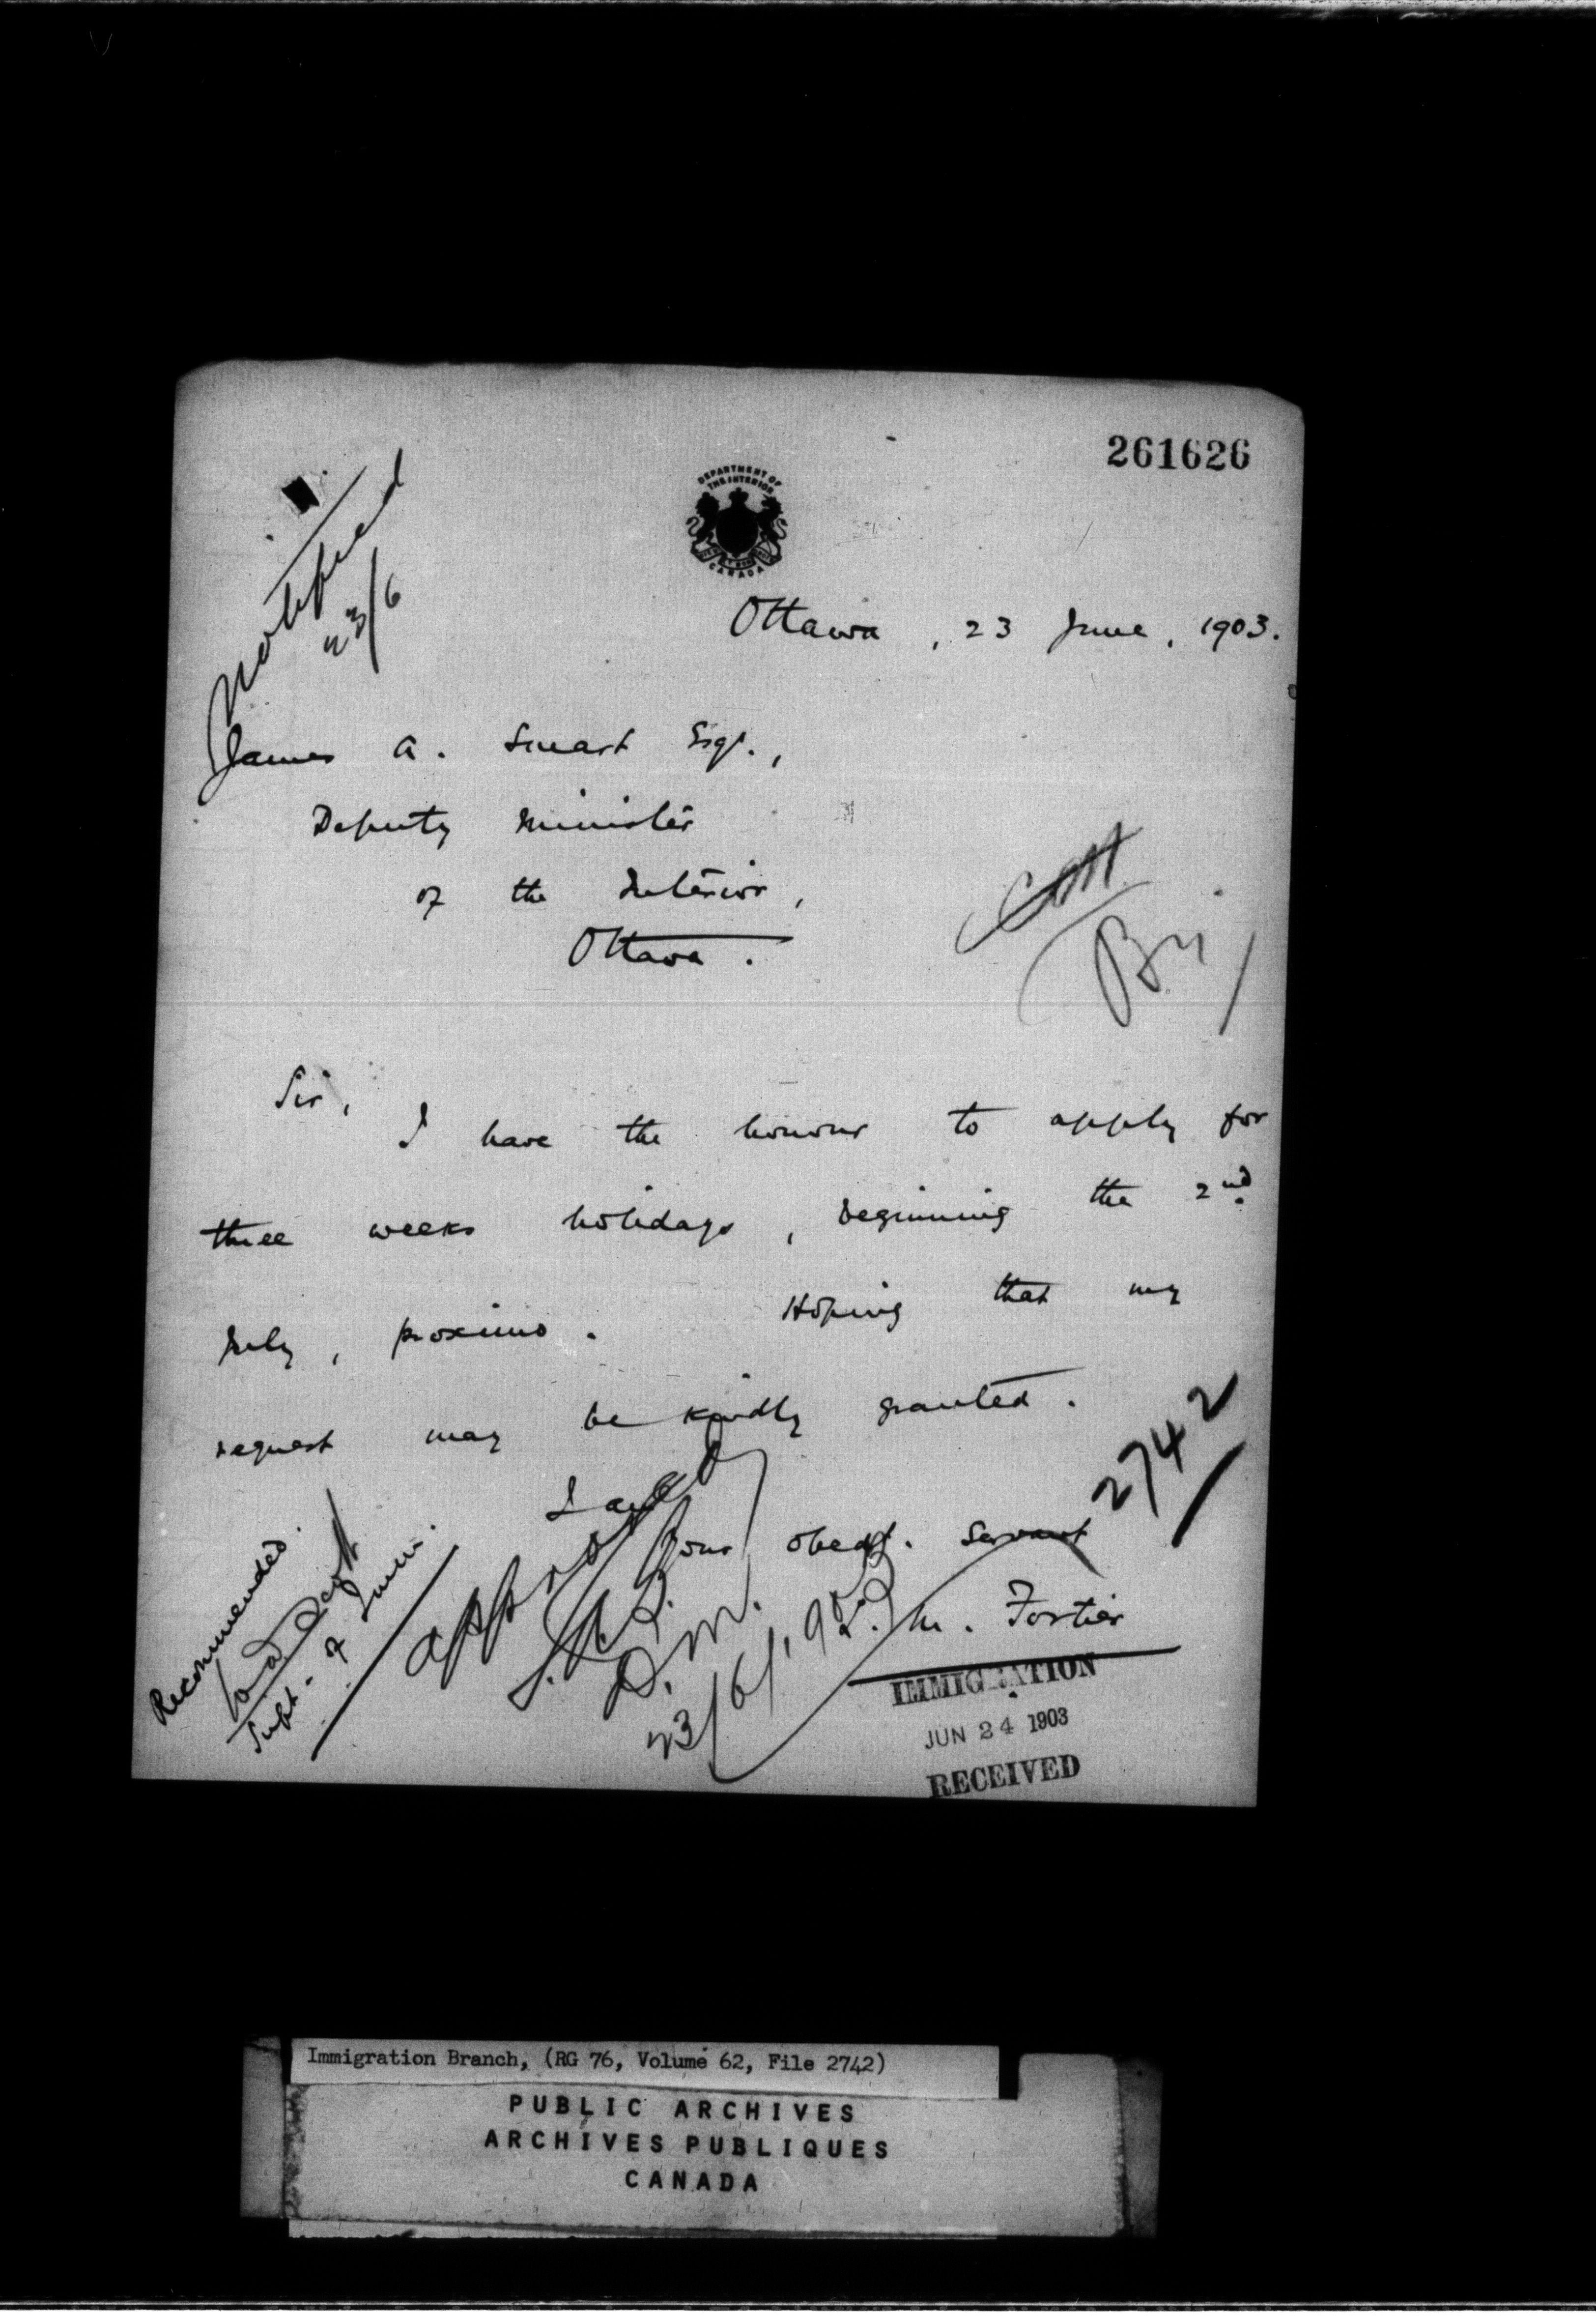 261626
DEPARTMENT OF
THE INTERIOR
CANADA
Notified
23/6
Ottawa, 23 June, 1903.
James A. Smart Esqr.,
Deputy Minister
of the Interior,
Ottawa.
Sir,
I have the honour to apply for
three weeks holidays, beginning the 2nd.
July, proximo. Hoping that my
request may be kindly granted.
I am
Your obedt. servant
L. M. Fortier
2742
Recommended.
W D Scott
Supt. of Immn.
Approved
J.A.S.
D.M.
23/6/1903
IMMIGRATION
JUN 24 1903
RECEIVED
Immigration Branch, (RG 76, Volume 62, File 2742)
PUBLIC ARCHIVES
ARCHIVES PUBLIQUES
CANADA